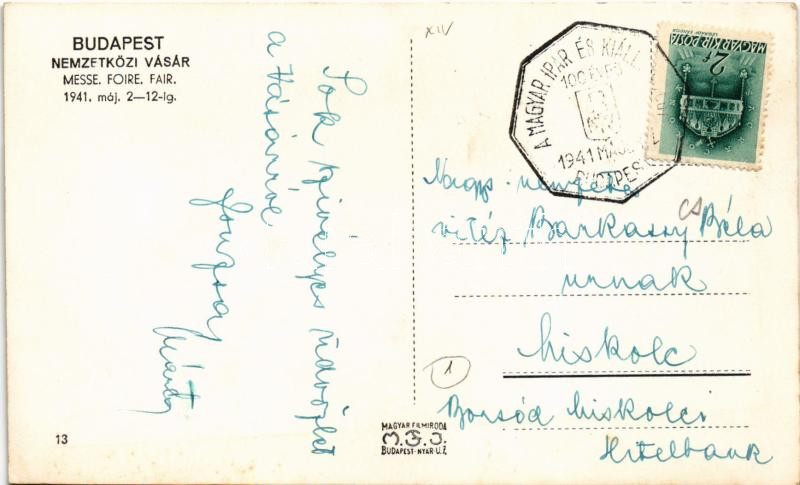 BUDAPEST
NEMZETKÖZI VÁSÁR
MESSE. FOIRE. FAIR.
1941. máj. 2—12-ig.
Sok szívélyes üdvözlet
a Vásárról
Márta
13
XIV
A MAGYAR IPAR ÉS KIÁLL
100 ÉVES
1941 MÁJ.
BUDAPEST
MAGYAR KIR. POSTA
2f
Nagys.
vitéz Barkassy Béla
cs
urnak
Miskolc
1
Borsód Miskolci
Hitelbank
MAGYAR FILMIRODA
M.F.I.
BUDAPEST-NYÁR-U.7.